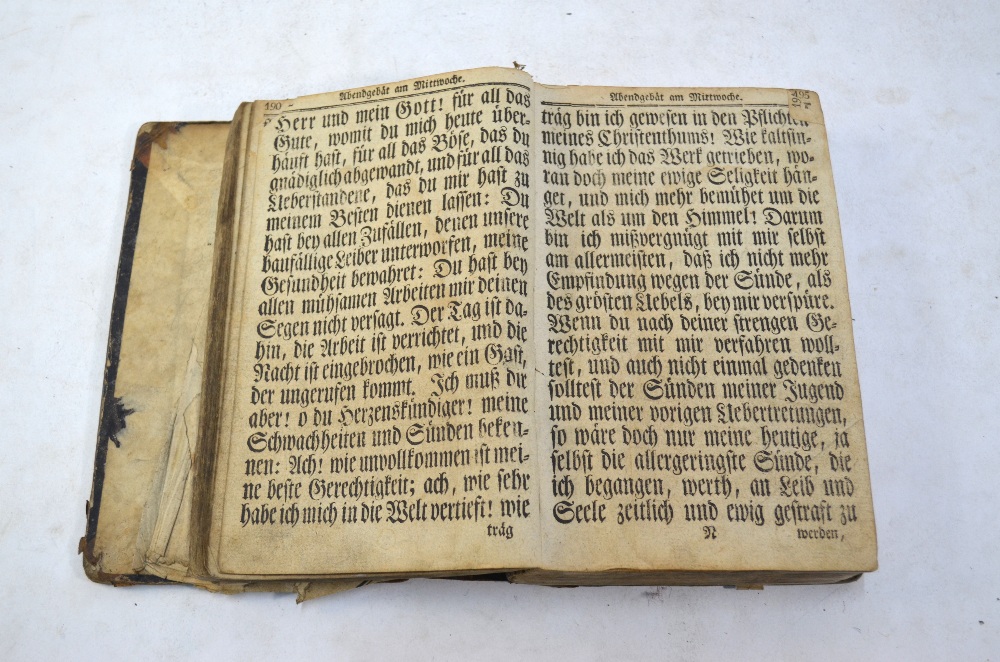 190
Abendgebät am Mittwoche.
Herr und mein Gott! für all das
Gute, womit du mich heute über-
häuft hast, für all das Böse, das du
gnädiglich abgewandt, und für all das
Ueberstandene, das du mir hast zu
meinem Besten dienen lassen: Du
hast bey allen Zufällen, denen unsere
baufällige Leiber unterworfen, meine
Gesundheit bewahret: Du hast bey
allen mühsamen Arbeiten mir deinen
Segen nicht versagt. Der Tag ist da-
hin, die Arbeit ist verrichtet, und die
Nacht ist eingebrochen, wie ein Gast,
der ungerufen kommt. Ich muß dir
aber! o du Herzenskündiger! meine
Schwachheiten und Sünden beken-
nen: Ach! wie unvollkommen ist mei-
ne beste Gerechtigkeit; ach, wie sehr
habe ich mich in die Welt vertieft! wie
träg
Abendgebät am Mittwoche.
träg bin ich gewesen in den Pflichten
meines Christenthums! Wie kaltsin-
nig habe ich das Werk getrieben, wo-
ran doch meine ewige Seligkeit hän-
get, und mich mehr bemühet um die
Welt als um den Himmel! Darum
bin ich mißvergnügt mit mir selbst
am allermeisten, daß ich nicht mehr
Empfindung wegen der Sünde, als
des grösten Uebels, bey mir verspüre.
Wenn du nach deiner strengen Ge-
rechtigkeit mit mir verfahren woll-
test, und auch nicht einmal gedenken
solltest der Sünden meiner Jugend
und meiner vorigen Uebertretungen,
so wäre doch nur meine heutige, ja
selbst die allergeringste Sünde, die
ich begangen, werth, an Leib und
Seele zeitlich und ewig gestraft zu
N werden,